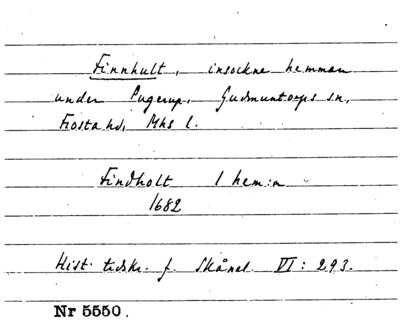 Finnhult, insockne hemman
under Pugerup, Gudmuntorps sn,
Frosta hd, Mhs l.
Findholt 1 hem:n
1682
Hist. tidskr. f. Skånel. VI: 293.
Nr 5550.